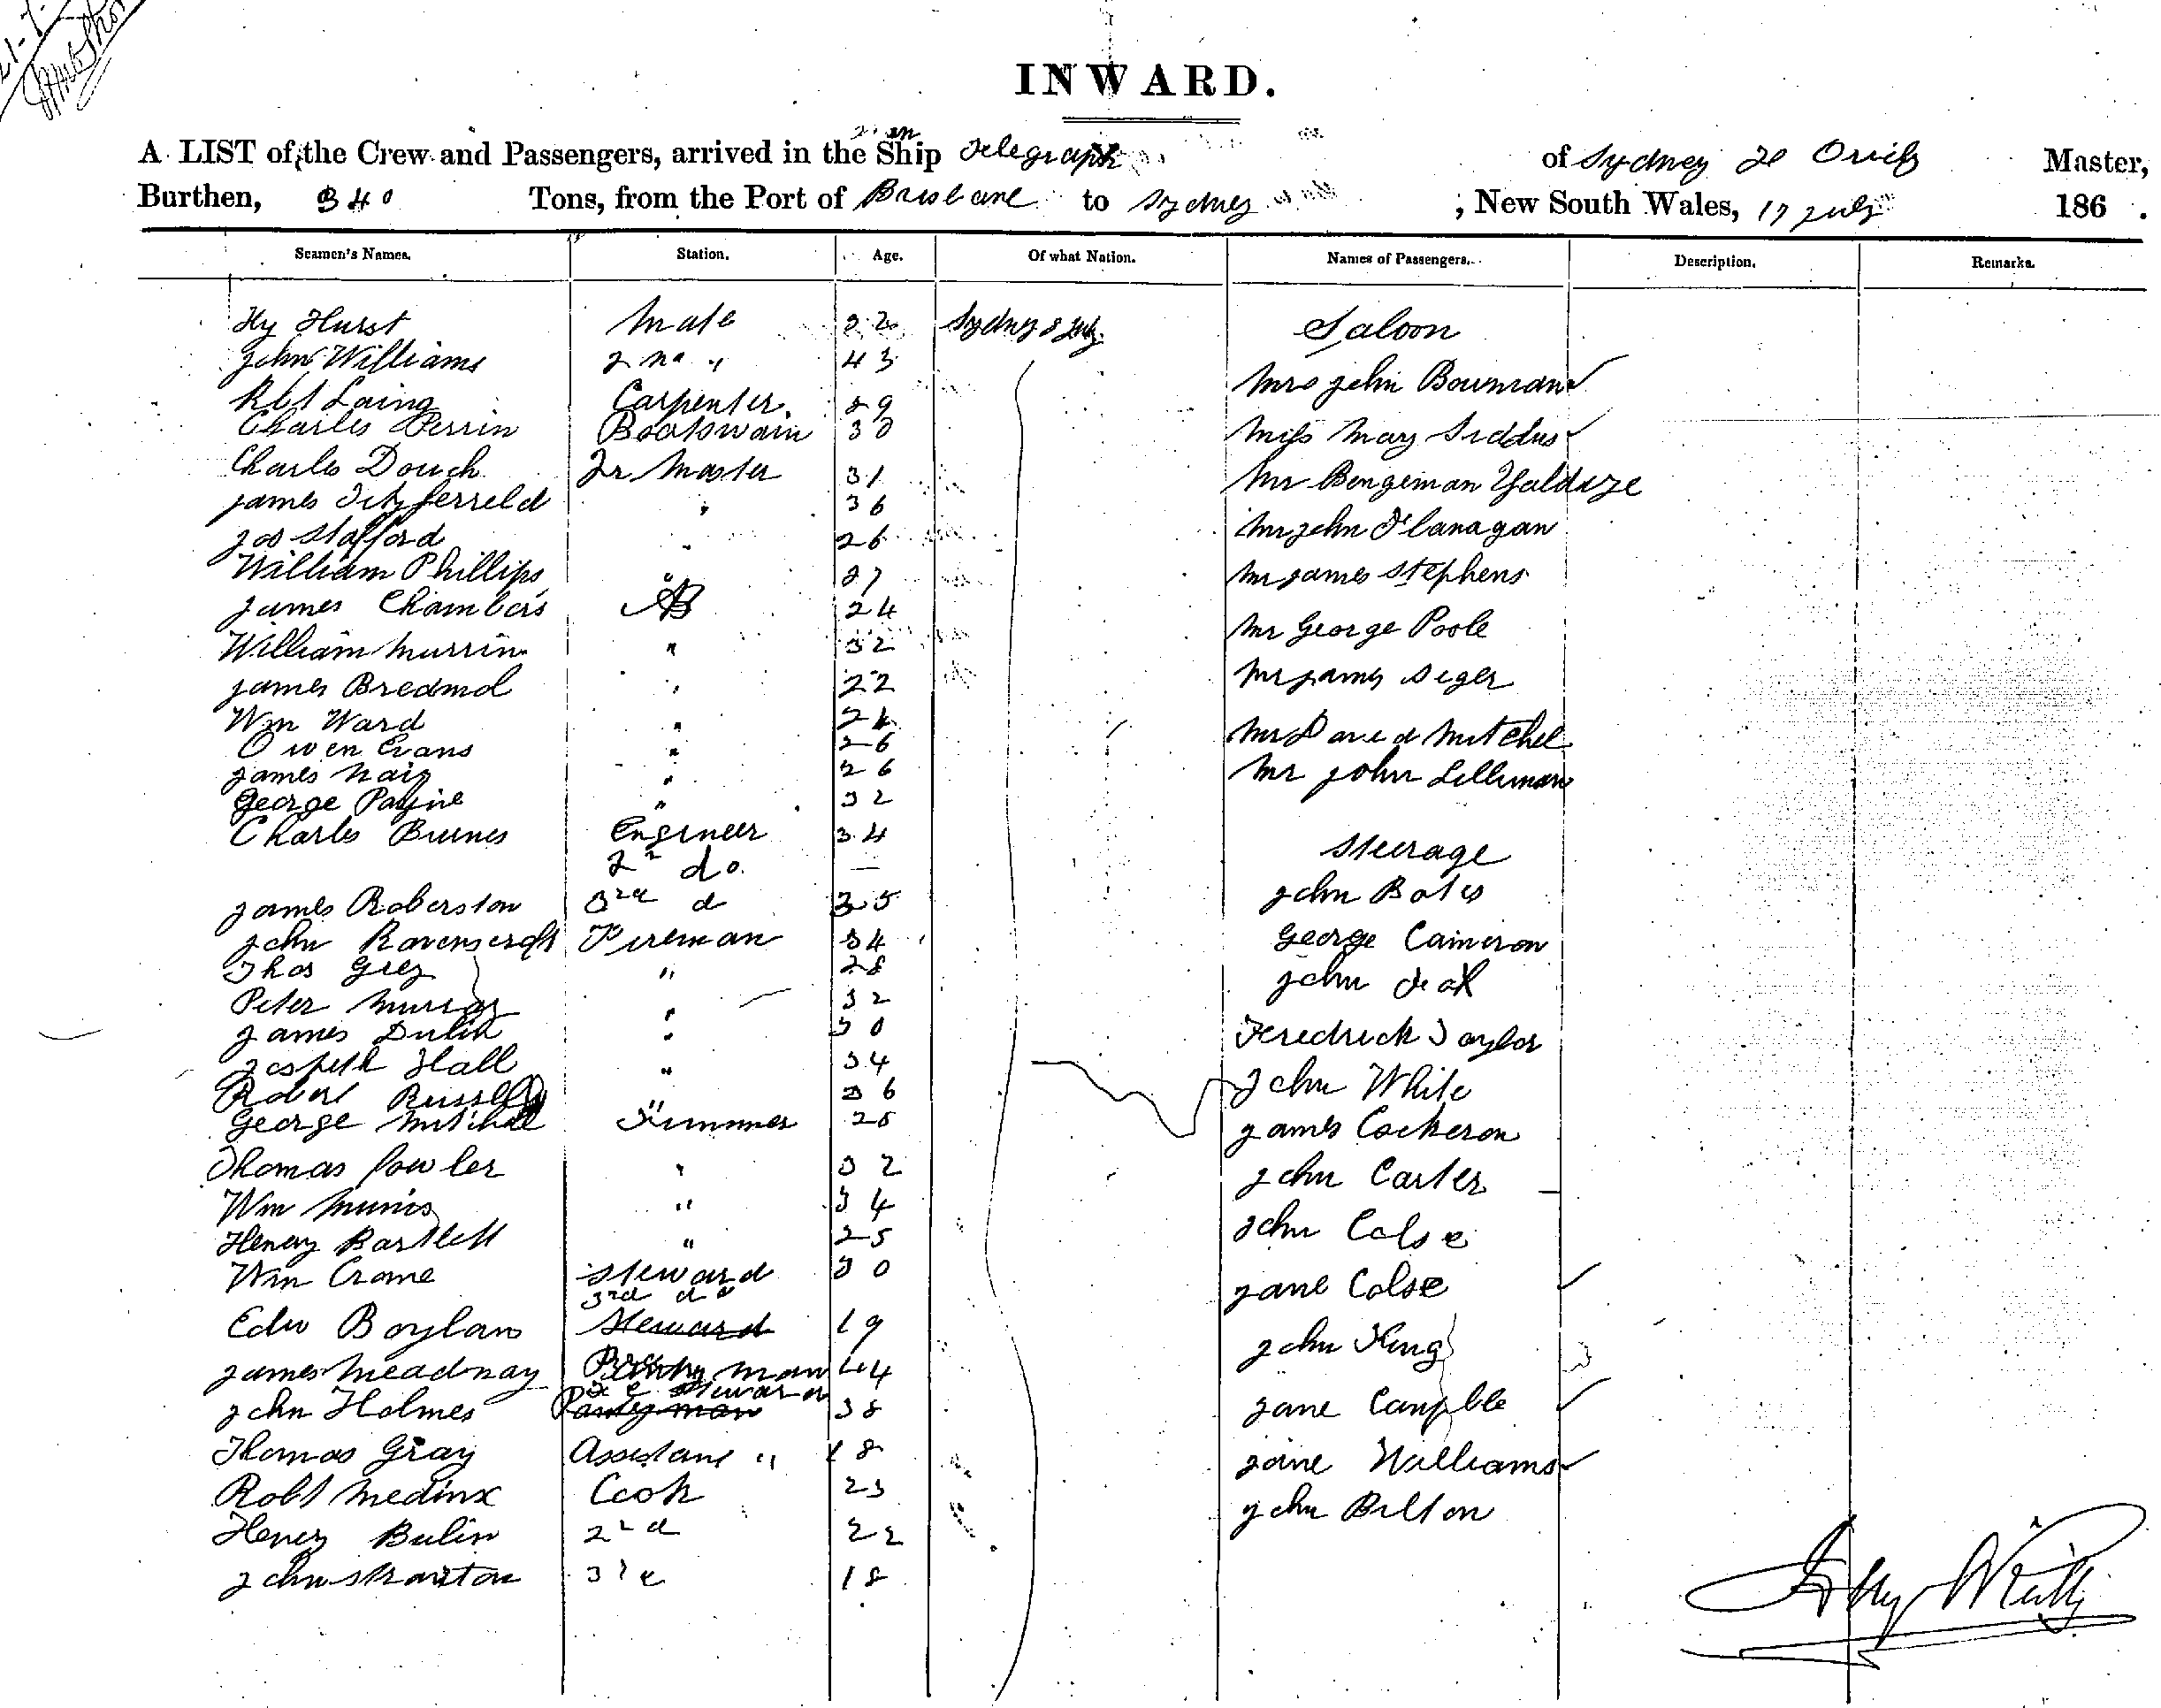 INWARD.
A LIST of the Crew and Passengers, arrived in the Ship Telegraph of Sydney Master,
Burthen, 340 Tons, from the Port of Brisbane to Sydney, New South Wales, 17 July 186 .
Seamen's Names. Station. Age. Of what Nation. Names of Passengers. Description. Remarks.
Hy Hurst Mate 32 Sydney
John Williams 2nd " 43
Robt Laing Carpenter 29
Charles Perrin Boatswain 30
Charles Douch Qr Master 31
James Fitzferreld " 36
Jos Stafford " 26
William Phillips " 27
James Chambers AB 24
William Murrin " 32
James Bredmd " 22
Wm Ward " 24
Owen Evans " 26
James Nair " 26
George Payne " 32
Charles Burnes Engineer 34
2nd do. —
James Roberston 3rd d 35
John Ravenscroft Fireman 34
Thos Grey " 28
Peter Murray " 32
James Dulin " 30
Jospeth Hall " 34
Robert Russell " 36
George Mitchell Trimmer 25
Thomas Fowler " 32
Wm Munis " 34
Henery Bartlett " 25
Wm Crane Steward 30
3rd do
Edw Boylan Steward 19
James Meadnay Pantry man 44
Fe Steward
John Holmes Pantry man 38
Thomas Gray Assistant " 18
Robt Medinx Cook 23
Henery Bulin 2nd 22
John Stranton 3rd 18
Saloon
Mrs John Bowman
Miss May Siddus
Mr Bengeman Yaldize
Mr John Flanagan
Mr James Stephens
Mr George Poole
Mr James Seger
Mr David Mitchel
Mr John Lilliman
Steerage
John Bates
George Cameron
John
Feredrick Taylor
John White
James Cockeron
John Carter
John Colse
Jane Colse
John King
Jane Campble
Jane Williams
John Bilton